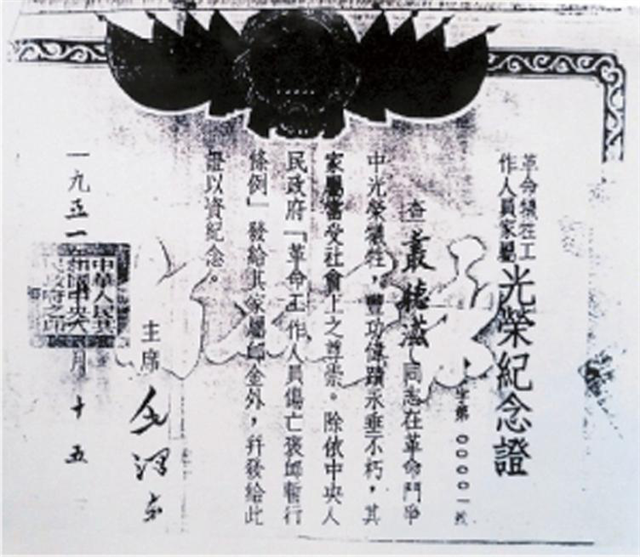 革命犧牲工
作人員家屬
光榮紀念證
字第000001號
查叢德滋同志在革命鬥爭
中光榮犧牲,豐功偉蹟永垂不朽,其
家屬當受社會上之尊崇。除依中央人
民政府「革命工作人員傷亡褒卹暫行
條例」發給其家屬卹金外,幷發給此
證以資紀念。
主席 毛澤東
一九五一 月十五
中華人民共和國中央人民政府之印